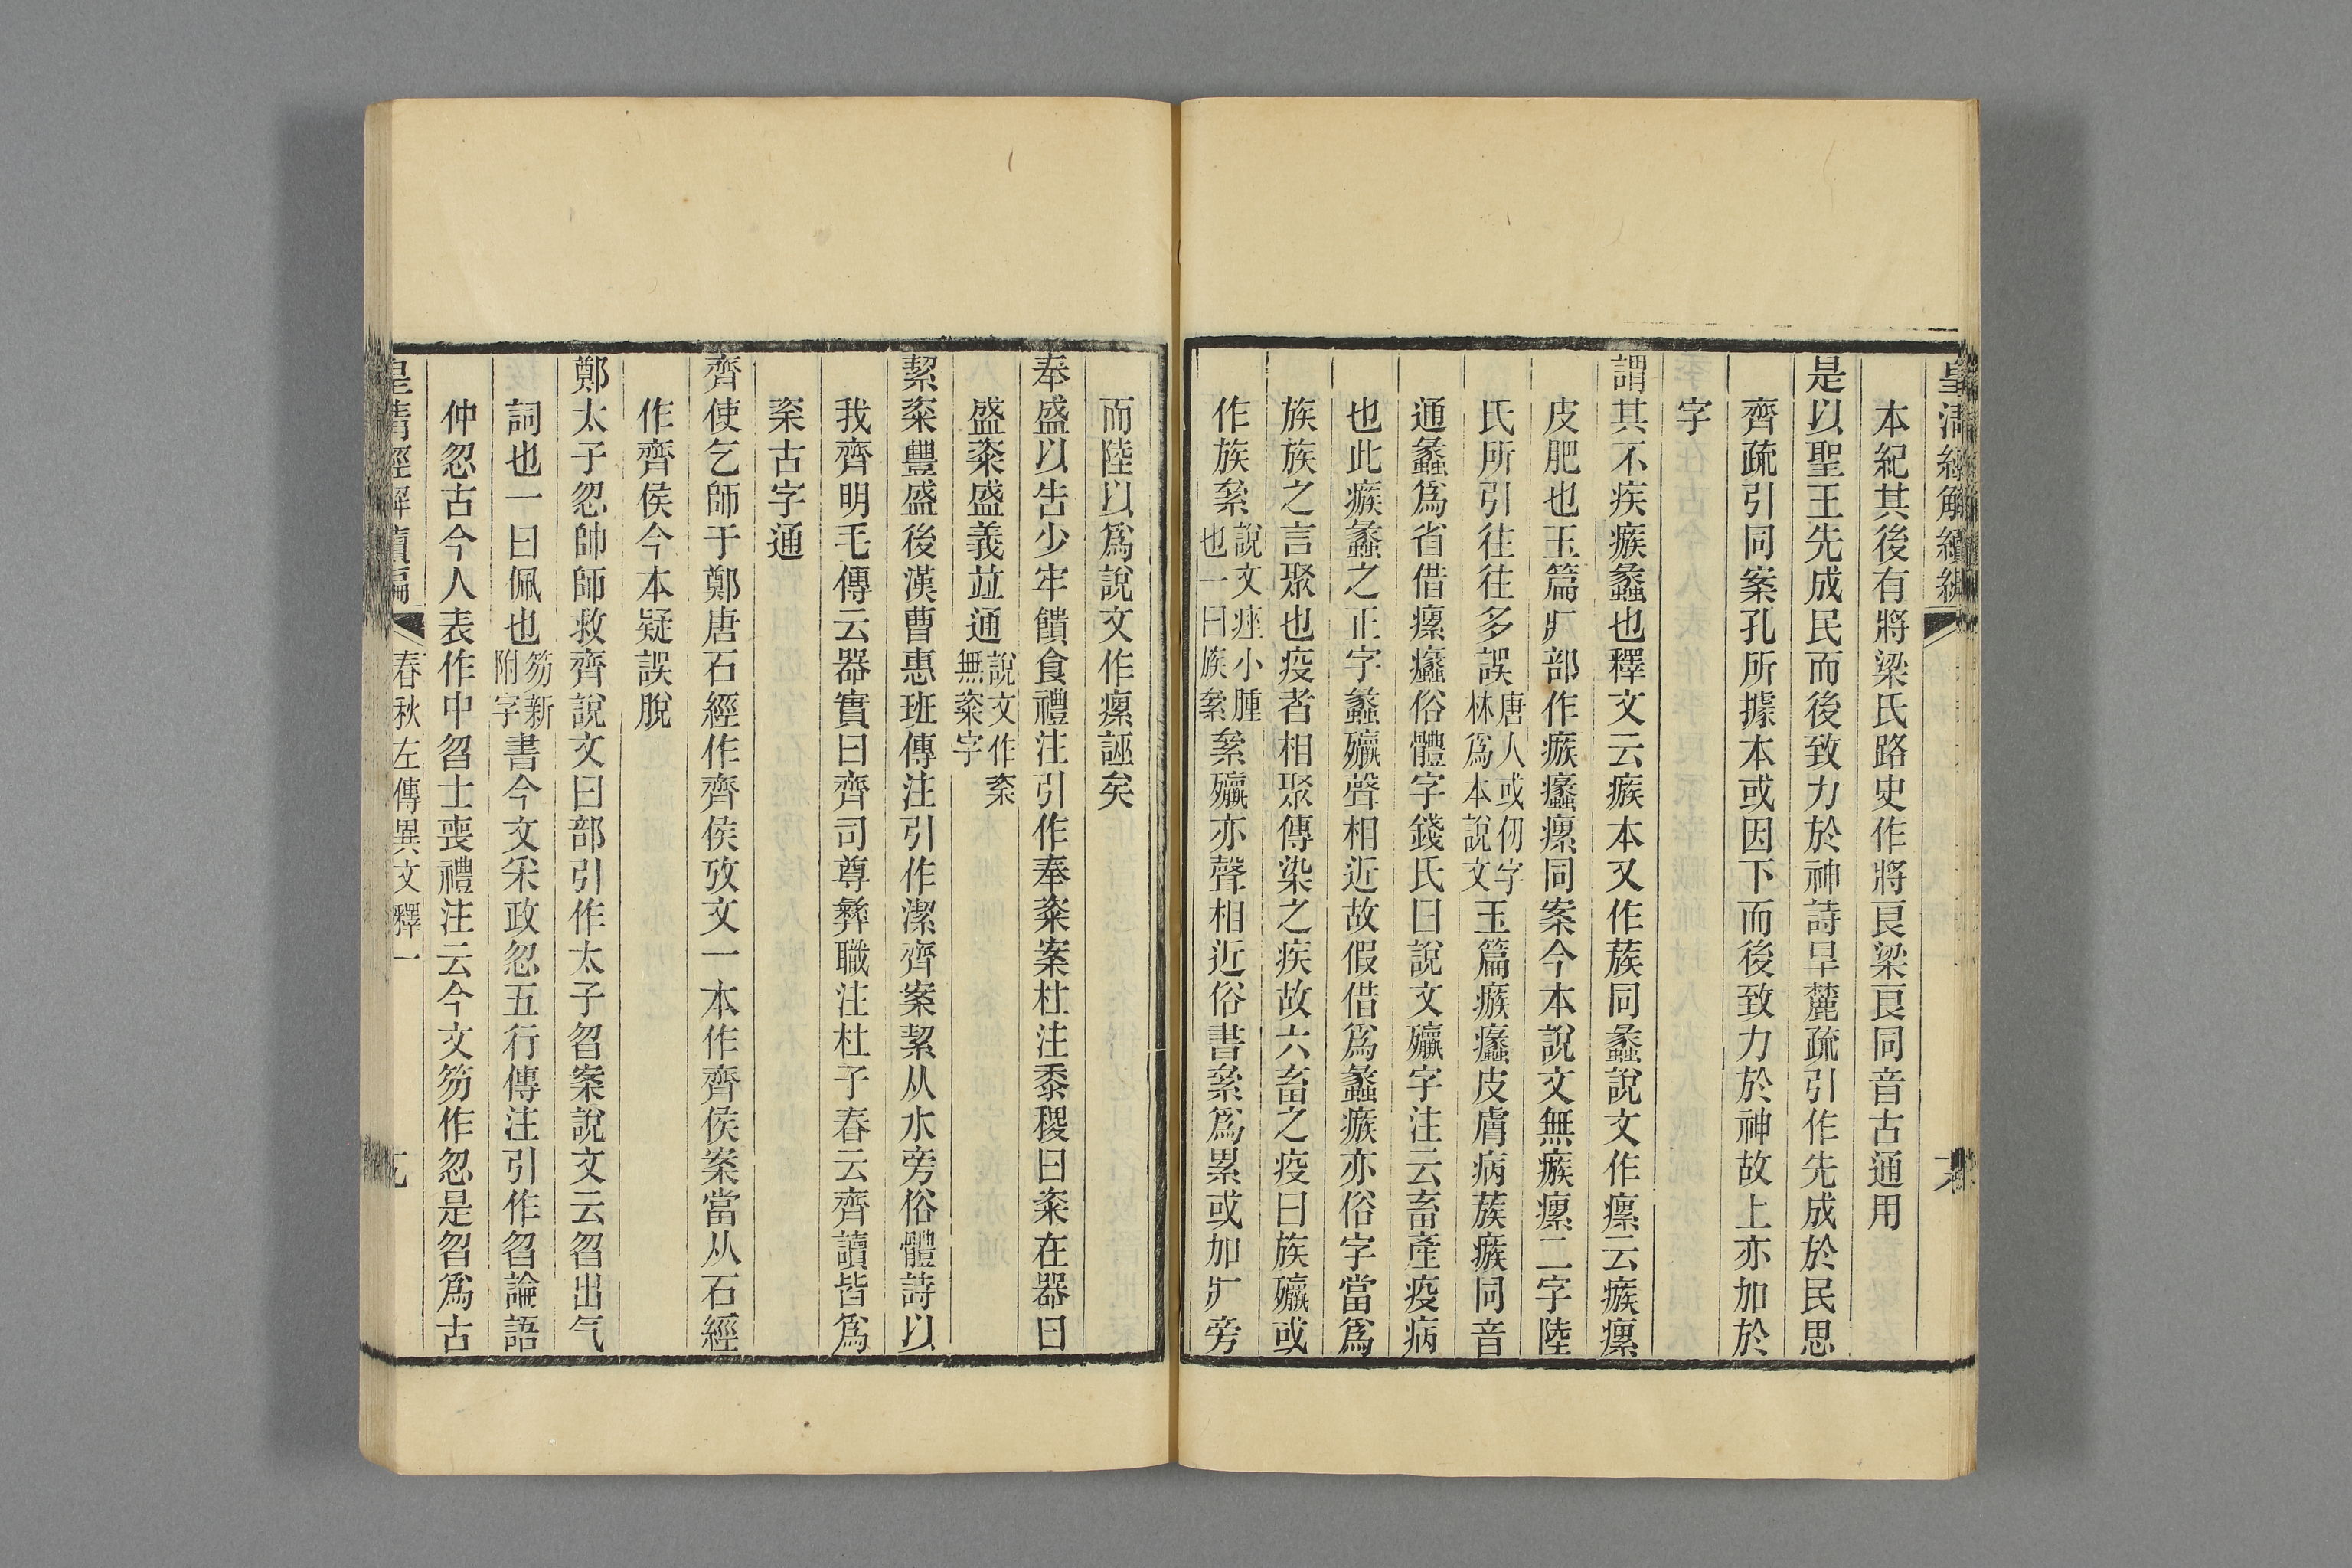 皇清經解續編
本紀其後有將梁氏路史作將良梁良同音古通用
是以聖王先成民而後致力於神詩旱麓疏引作先成於民思
齊疏引同案孔所據本或因下而後致力於神故上亦加於
字
謂其不疾瘯蠡也釋文云瘯本又作蔟同蠡說文作瘰云瘯瘰
皮肥也玉篇疒部作瘯癳瘰同案今本說文無瘯瘰二字陸
氏所引往往多誤唐人或仞字林爲本說文玉篇瘯癳皮膚病蔟瘯同音
通蠡爲省借瘰癳俗體字錢氏曰說文㿔字注云畜產疫病
也此瘯蠡之正字蠡㿔聲相近故假借爲蠡瘯亦俗字當爲
族族之言聚也疫者相聚傳染之疾故六畜之疫曰族㿔或
作族絫說文痤小腫也一曰族絫絫㿔亦聲相近俗書絫爲累或加疒旁
而陸以爲說文作瘰誣矣
奉盛以告少牢饋食禮注引作奉粢案杜注黍稷曰粢在器曰
盛粢盛義竝通說文作秶無粢字
絜粢豐盛後漢曹惠班傳注引作潔齊案絜从水旁俗體詩以
我齊明毛傳云器實曰齊司尊彝職注杜子春云齊讀皆爲
粢古字通
齊使乞師于鄭唐石經作齊侯攷文一本作齊侯案當从石經
作齊侯今本疑誤脫
鄭太子忽帥師救齊說文曰部引作太子曶案說文云曶出气
詞也一曰佩也笏新附字書今文采政忽五行傳注引作曶論語
仲忽古今人表作中曶士喪禮注云今文笏作忽是曶爲古
皇清經解續編 春秋左傳異文釋一